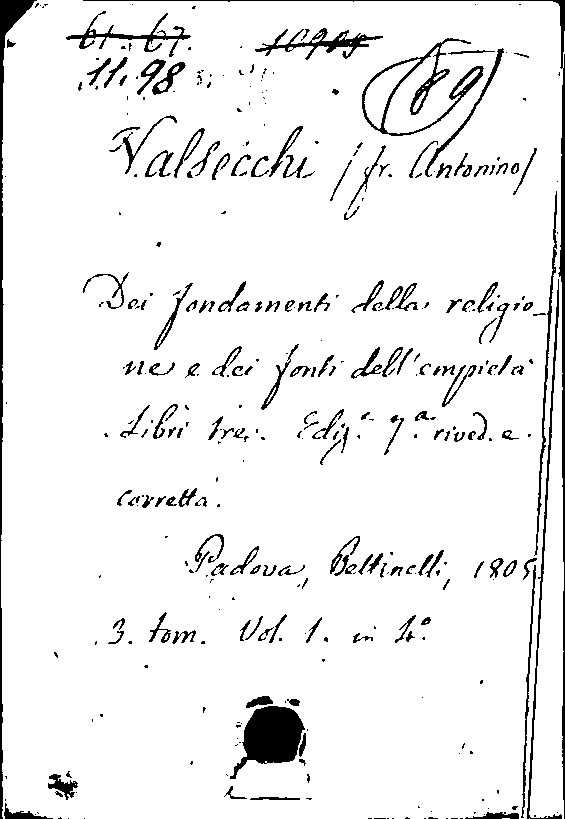 61.67. 10905
11.98 89
Valsecchi /fr. Antonino/
Dei fondamenti della religio_
ne e dei fonti dell'empietà
Libri tre. Ediz.e 7.a rived. e
corretta.
Padova, Bettinelli, 1805
3. tom. Vol. 1. in 4.°